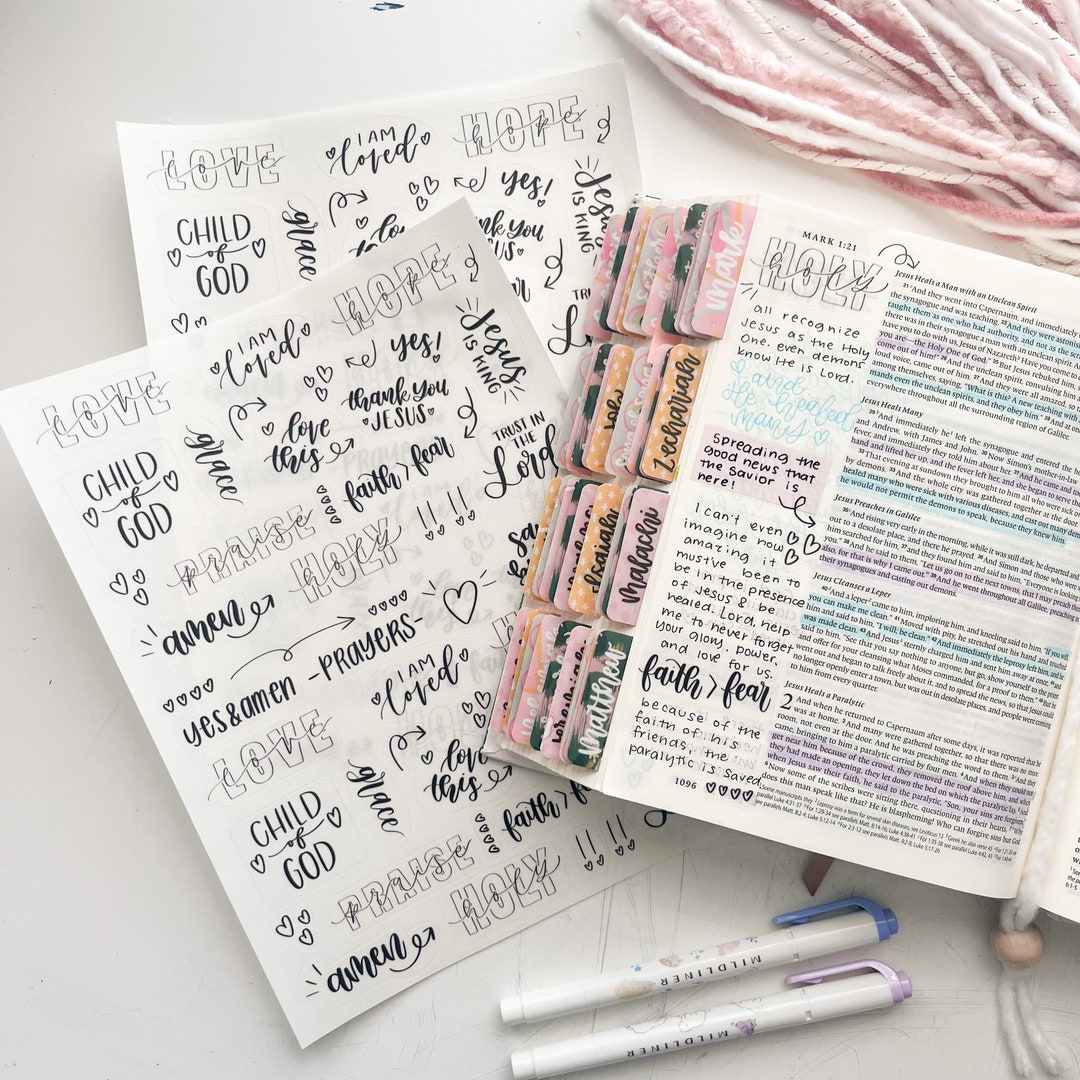 LOVE
I AM
loved
HOPE
CHILD
of
GOD
grace
yes!
Jesus
IS KING
LOVE
I AM
loved
HOPE
yes!
Jesus
IS KING
CHILD
of
GOD
grace
love
this
thank you
JESUS
faith > fear
TRUST IN
THE
Lord
PRAISE
HOLY
!!
amen
yes & amen
-PRAYERS-
I AM
loved
LOVE
CHILD
of
GOD
grace
love
this
PRAISE
HOLY
!!
amen
mark
Zechariah
Isaiah
malachi
matthew
MARK 1:21
HOLY
all recognize
Jesus as the Holy
One. even demons
know He is Lord.
and
He healed
many
Spreading the
good news that
the Savior is
here!
I can't even
imagine how
amazing it
must've been to
be in the presence
of Jesus & be
healed. Lord, help
me to never forget
your glory, power,
and love for us.
faith > fear
because of the
faith of his
friends, the
paralytic is saved
1096
Jesus Heals a Man with an Unclean Spirit
21 And they went into Capernaum, and immediately
the synagogue and was teaching. 22 And they were astonis
taught them as one who had authority, and not as the scr
there was in their synagogue a man with an unclean spirit. A
have you to do with us, Jesus of Nazareth? Have you come to
you are—the Holy One of God." 25 But Jesus rebuked him,
come out of him!" 26 And the unclean spirit, convulsing him a
loud voice, came out of him. 27 And they were all amazed, so
among themselves, saying, "What is this? A new teaching with
mands even the unclean spirits, and they obey him." 28 And at on
everywhere throughout all the surrounding region of Galilee.
Jesus Heals Many
29 And immediately he left the synagogue and entered the ho
and Andrew, with James and John. 30 Now Simon's mother-in-la
fever, and immediately they told him about her. 31 And he came and to
hand and lifted her up, and the fever left her, and she began to serve the
32 That evening at sundown they brought to him all who were sick o
by demons. 33 And the whole city was gathered together at the door.
healed many who were sick with various diseases, and cast out many demo
he would not permit the demons to speak, because they knew him.
Jesus Preaches in Galilee
35 And rising very early in the morning, while it was still dark, he departed and
out to a desolate place, and there he prayed. 36 And Simon and those who were
him searched for him, 37 and they found him and said to him, "Everyone is looking
you." 38 And he said to them, "Let us go on to the next towns, that I may preach the
also, for that is why I came out." 39 And he went throughout all Galilee, preaching in
their synagogues and casting out demons.
Jesus Cleanses a Leper
40 And a leper came to him, imploring him, and kneeling said to him, "If you will,
you can make me clean." 41 Moved with pity, he stretched out his hand and touched
him and said to him, "I will; be clean." 42 And immediately the leprosy left him, and he
was made clean. 43 And Jesus sternly charged him and sent him away at once,
said to him, "See that you say nothing to anyone, but go, show yourself to the priest
and offer for your cleansing what Moses commanded, for a proof to them." 45 But he
went out and began to talk freely about it, and to spread the news, so that Jesus could
no longer openly enter a town, but was out in desolate places, and people were coming
to him from every quarter.
Jesus Heals a Paralytic
2 And when he returned to Capernaum after some days, it was reported that he
was at home. 2 And many were gathered together, so that there was no more
room, not even at the door. And he was preaching the word to them. 3 And they
came, bringing to him a paralytic carried by four men. 4 And when they could not
get near him because of the crowd, they removed the roof above him, and when
they had made an opening, they let down the bed on which the paralytic lay. 5 And
when Jesus saw their faith, he said to the paralytic, "Son, your sins are forgiven."
6 Now some of the scribes were sitting there, questioning in their hearts,
does this man speak like that? He is blaspheming! Who can forgive sins but God
MILDLINER
MILDLINER